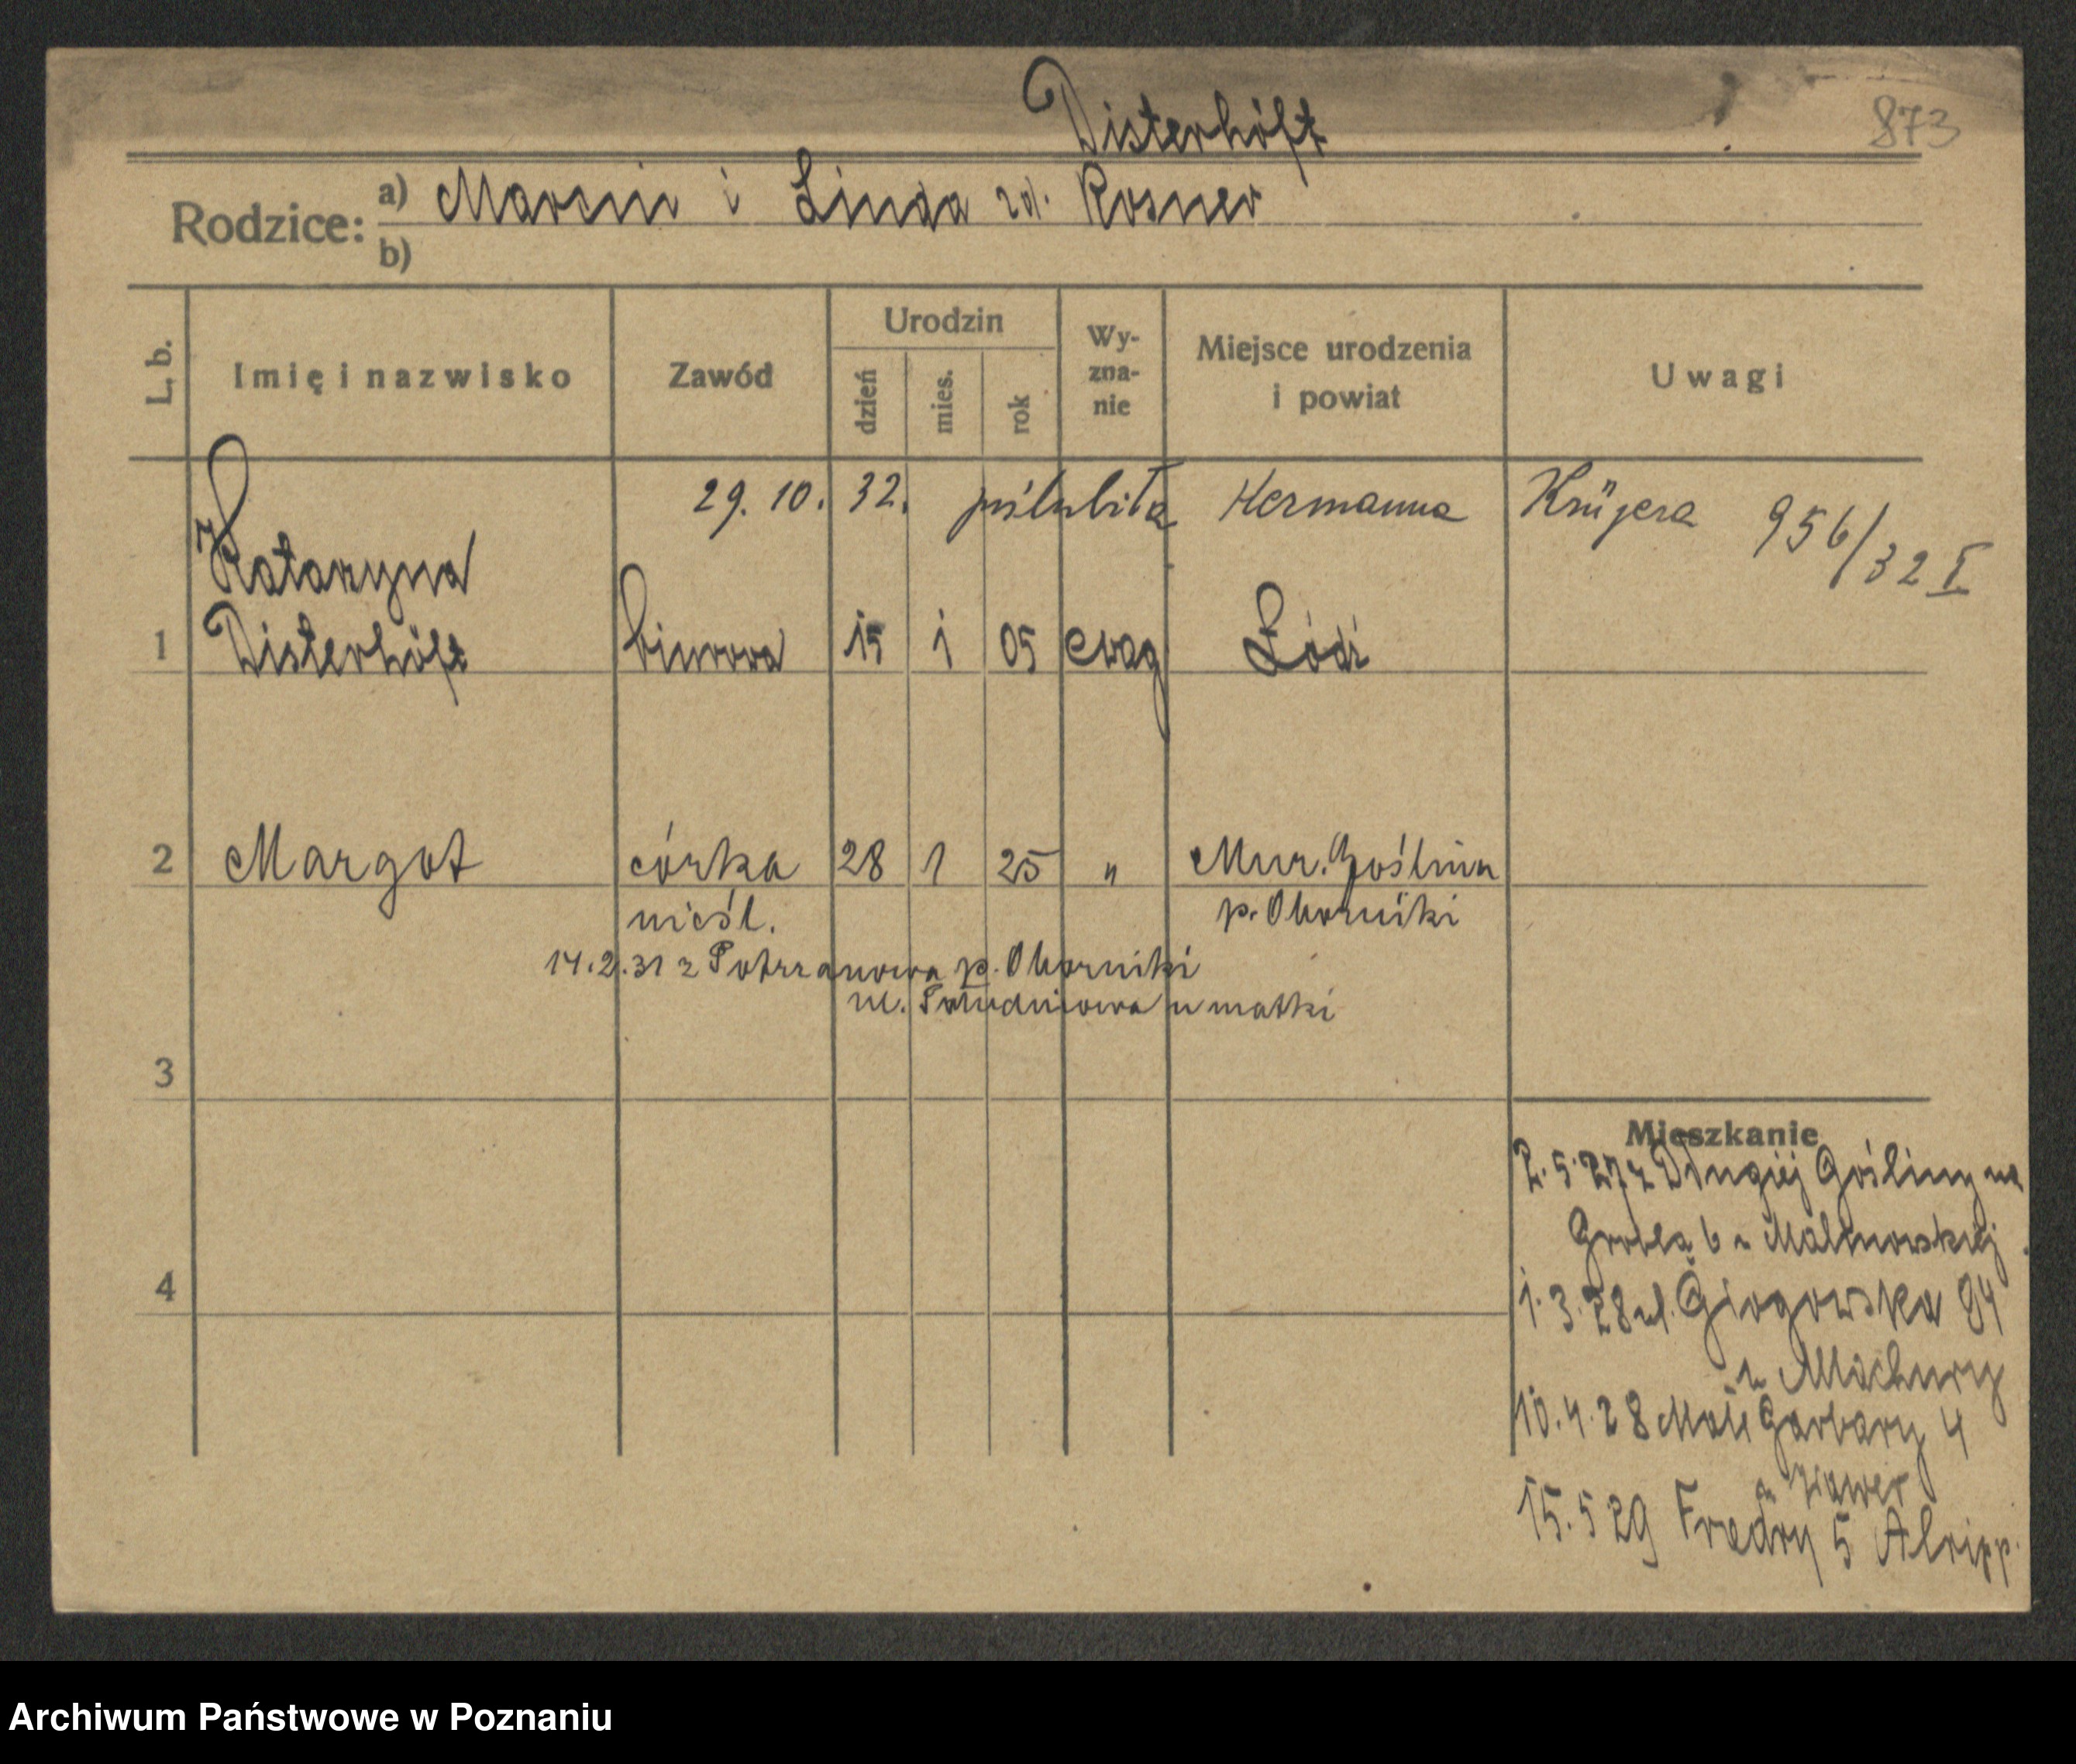 Disterhöft
873
Rodzice: a) Marcin i Linda zd. Rosner
b)
L. b.
Imię i nazwisko
Zawód
Urodzin
dzień
mies.
rok
Wy-
zna-
nie
Miejsce urodzenia
i powiat
Uwagi
29. 10. 32. poślubiła Hermanna Krügera 956/32 I
1 Katarzyna
Disterhöft biurowa 15 1 05 ewag Łódź
2 Margot córka 28 1 25 " Mur. Goślina
nieśl. p. Oborniki
14.2.31 z Potrzanowa p. Oborniki
ul. Południowa u matki
3
4
Mieszkanie
2.5.27 z Długiej Gośliny na
Groblą 6 u Malinowskiej
1.3.28 ul. Głogowska 84
u Machury
10.4.28 Małe Garbary 4
u
15.5 29 Fredry 5
Archiwum Państwowe w Poznaniu